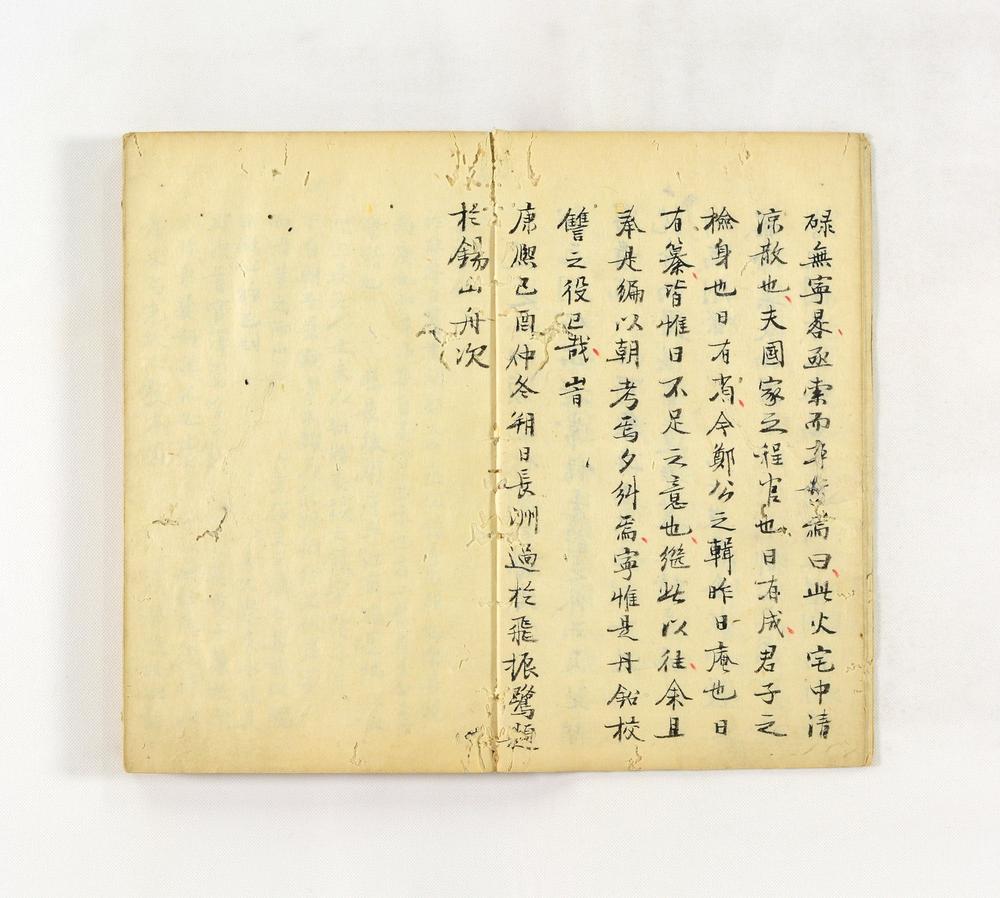 碌無寧晷亟索而卒業焉曰此火宅中清
涼散也夫國家之程官也日有成君子之
檢身也日有省今鄭公之輯昨日菴也日
有纂皆惟日不足之意也繼此以往余且
奉是編以朝考焉夕糾焉寧惟是丹鉛校
讐之役已哉 旹
康熙己酉仲冬朔日長洲過於飛振鷺題
於錫山舟次